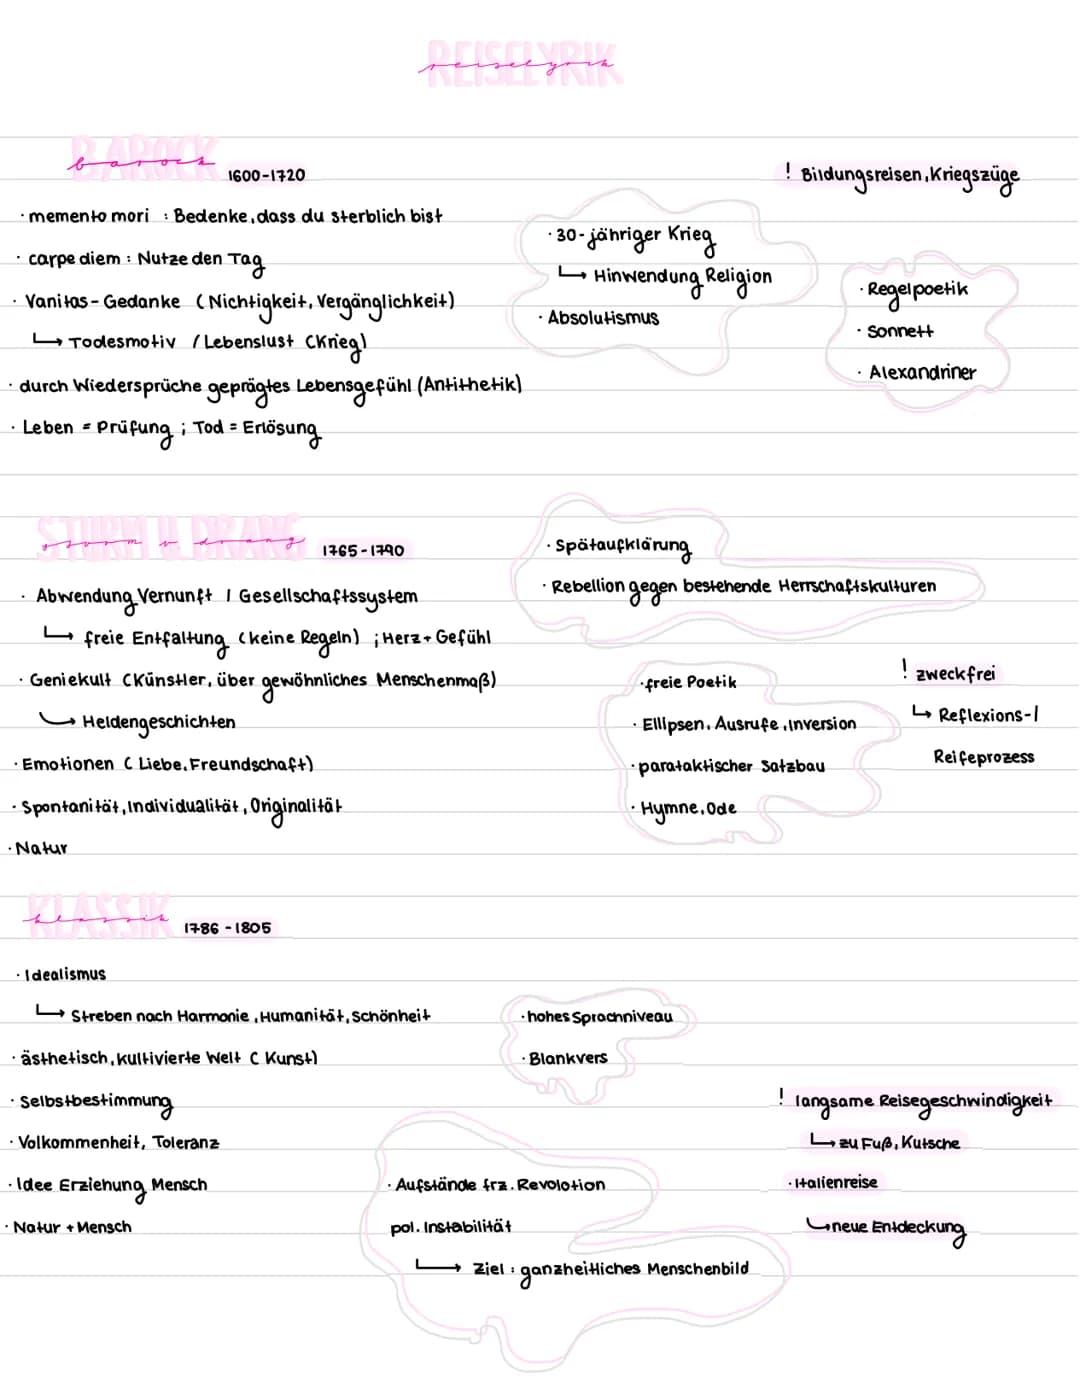 REISELYRIK
reiselyrik
BAROCK
barock
1600-1720
! Bildungsreisen, Kriegszüge
· memento mori : Bedenke, dass du sterblich bist
· carpe diem : Nutze den Tag
· Vanitas - Gedanke ( Nichtigkeit, Vergänglichkeit)
↳ Todesmotiv / Lebenslust (Krieg)
· durch Wiedersprüche geprägtes Lebensgefühl (Antithetik)
· Leben = Prüfung ; Tod = Erlösung
· 30-jähriger Krieg
↳ Hinwendung Religion
· Absolutismus
· Regelpoetik
· Sonnett
· Alexandriner
STURM U. DRANG
sturm u drang
1765-1790
· Abwendung Vernunft / Gesellschaftssystem
↳ freie Entfaltung (keine Regeln) ; Herz + Gefühl
· Geniekult (Künstler, über gewöhnliches Menschenmaß)
↳ Heldengeschichten
· Emotionen ( Liebe, Freundschaft)
· Spontanität, Individualität, Originalität
· Natur
· Spätaufklärung
· Rebellion gegen bestehende Herrschaftskulturen
· freie Poetik
· Ellipsen, Ausrufe, Inversion
· parataktischer Satzbau
· Hymne, Ode
! zweckfrei
↳ Reflexions-/
Reifeprozess
KLASSIK
klassik
1786 - 1805
· Idealismus
↳ Streben nach Harmonie, Humanität, Schönheit
· ästhetisch, kultivierte Welt ( Kunst)
· Selbstbestimmung
· Volkommenheit, Toleranz
· Idee Erziehung Mensch
· Natur + Mensch
· hohes Sprachniveau
· Blankvers
· Aufstände frz. Revolotion
pol. Instabilität
↳ Ziel : ganzheitliches Menschenbild
! langsame Reisegeschwindigkeit
↳ zu Fuß, Kutsche
· Italienreise
↳ neue Entdeckung